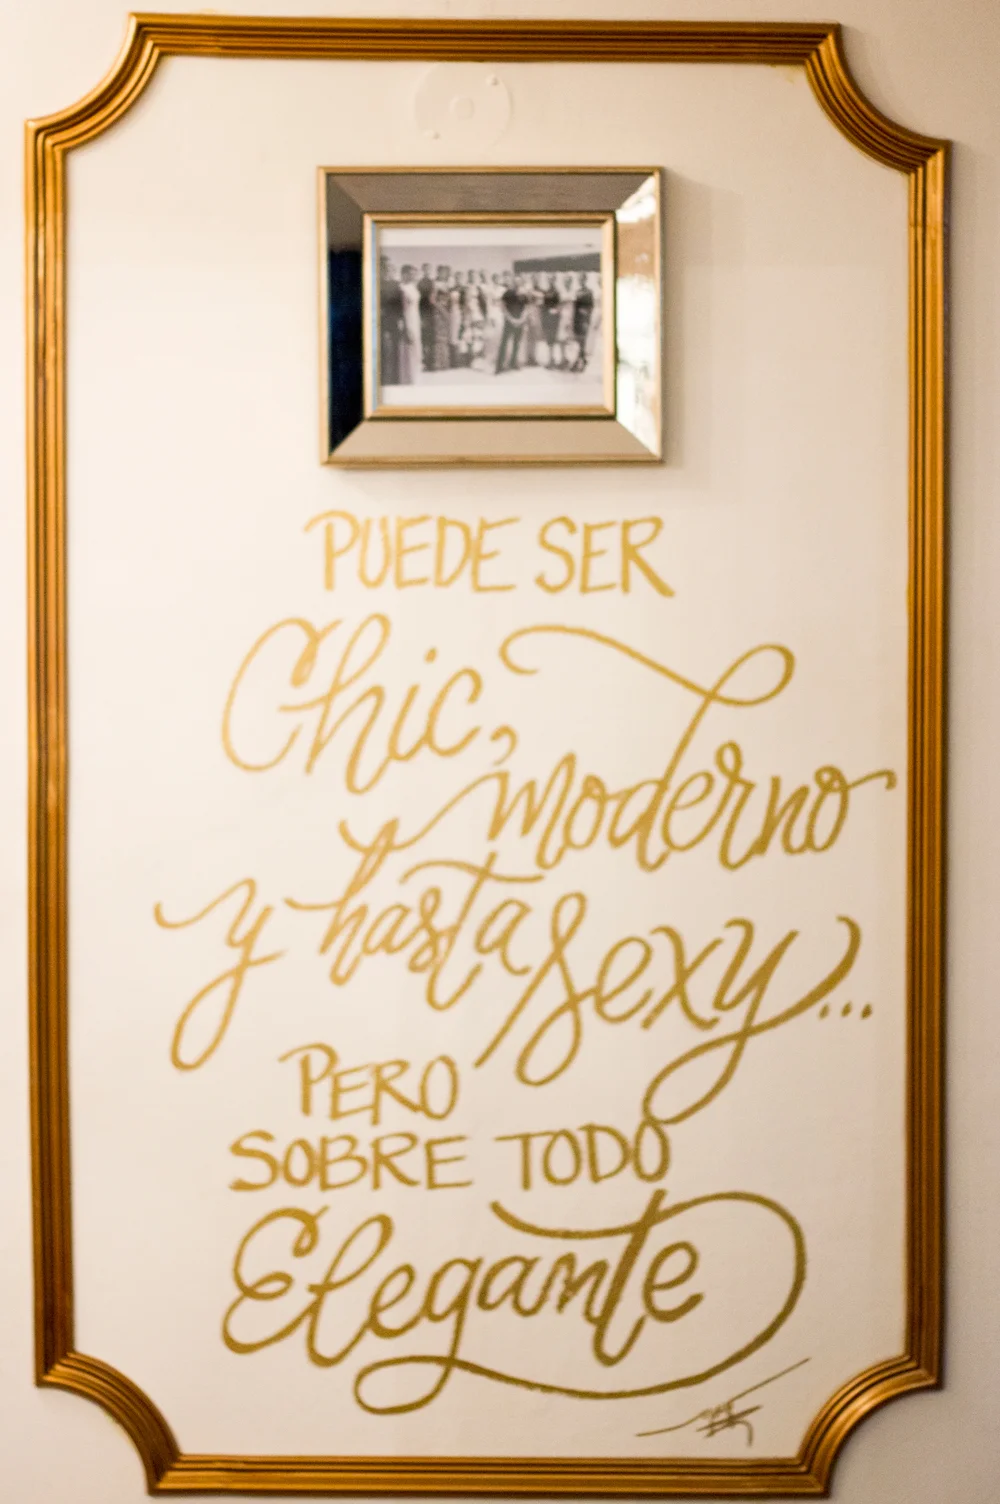 PUEDE SER
Chic,
moderno
y hasta sexy...
PERO
SOBRE TODO
Elegante